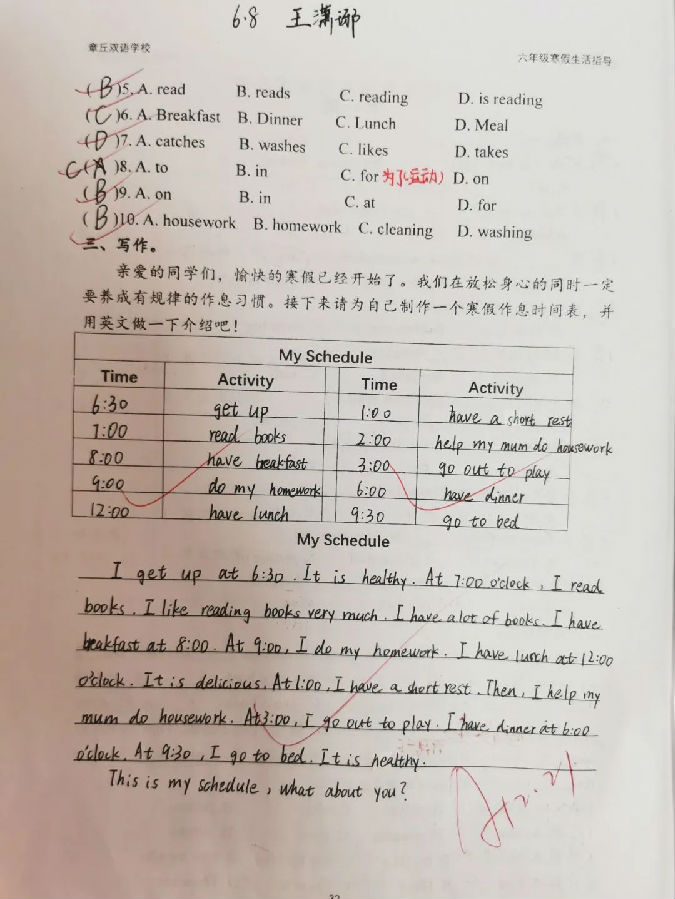 6.8 王潇琊
章丘双语学校 六年级寒假生活指导
(B)5. A. read B. reads C. reading D. is reading
(C)6. A. Breakfast B. Dinner C. Lunch D. Meal
(D)7. A. catches B. washes C. likes D. takes
C(A)8. A. to B. in C. for 为了(运动) D. on
(B)9. A. on B. in C. at D. for
(B)10. A. housework B. homework C. cleaning D. washing
三、写作。
亲爱的同学们，愉快的寒假已经开始了。我们在放松身心的同时一定
要养成有规律的作息习惯。接下来请为自己制作一个寒假作息时间表，并
用英文做一下介绍吧！
My Schedule
Time Activity Time Activity
6:30 get up 1:00 have a short rest
7:00 read books 2:00 help my mum do housework
8:00 have breakfast 3:00 go out to play
9:00 do my homework 6:00 have dinner
12:00 have lunch 9:30 go to bed
My Schedule
I get up at 6:30. It is healthy. At 7:00 o'clock, I read
books. I like reading books very much. I have a lot of books. I have
breakfast at 8:00. At 9:00, I do my homework. I have lunch at 12:00
o'clock. It is delicious. At 1:00, I have a short rest. Then, I help my
mum do housework. At 3:00, I go out to play. I have dinner at 6:00
o'clock. At 9:30, I go to bed. It is healthy.
This is my schedule, what about you?